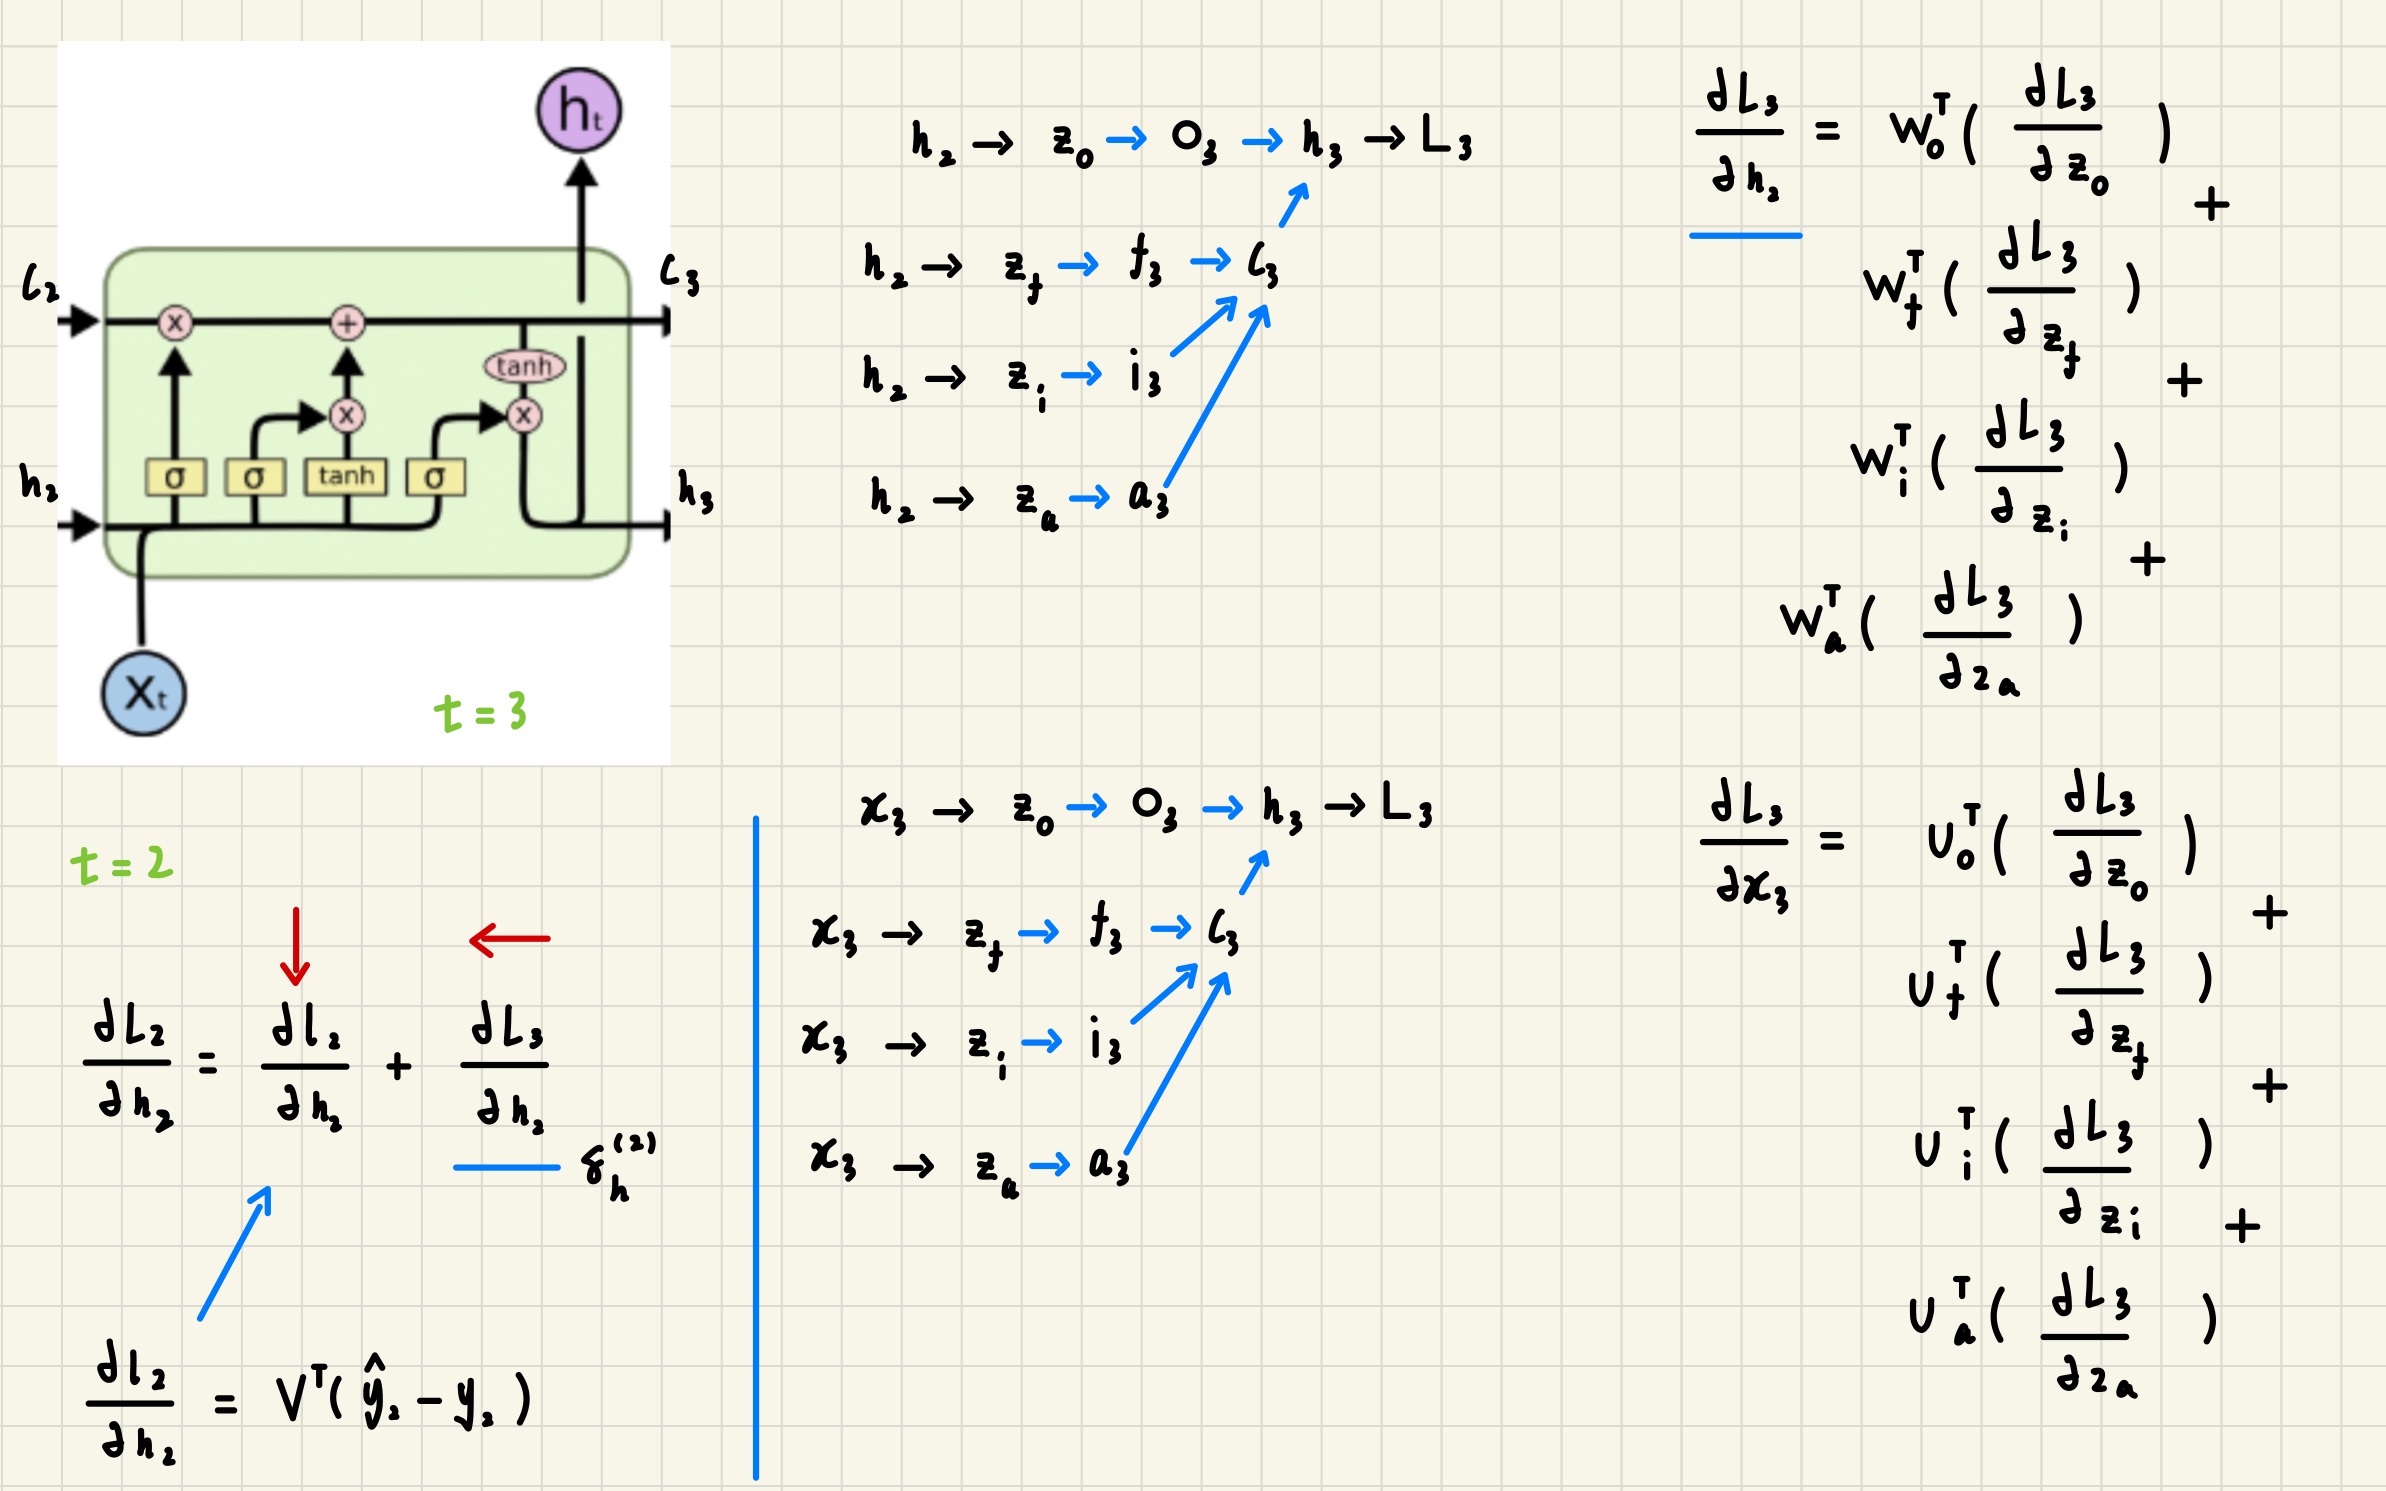 h_t
C_2
C_3
x
+
tanh
x
x
σ
σ
tanh
σ
h_2
h_3
X_t
t = 3
h_2 → z_o → O_3 → h_3 → L_3
h_2 → z_f → f_3 → C_3
h_2 → z_i → i_3
h_2 → z_a → a_3
∂L_3 / ∂h_2 = W_o^T ( ∂L_3 / ∂z_o ) +
W_f^T ( ∂L_3 / ∂z_f ) +
W_i^T ( ∂L_3 / ∂z_i ) +
W_a^T ( ∂L_3 / ∂z_a )
t = 2
∂L_2 / ∂h_2 = ∂l_2 / ∂h_2 + ∂L_3 / ∂h_2
δ_h^(2)
∂l_2 / ∂h_2 = V^T ( ŷ_2 − y_2 )
x_3 → z_o → O_3 → h_3 → L_3
x_3 → z_f → f_3 → C_3
x_3 → z_i → i_3
x_3 → z_a → a_3
∂L_3 / ∂x_3 = U_o^T ( ∂L_3 / ∂z_o ) +
U_f^T ( ∂L_3 / ∂z_f ) +
U_i^T ( ∂L_3 / ∂z_i ) +
U_a^T ( ∂L_3 / ∂z_a )